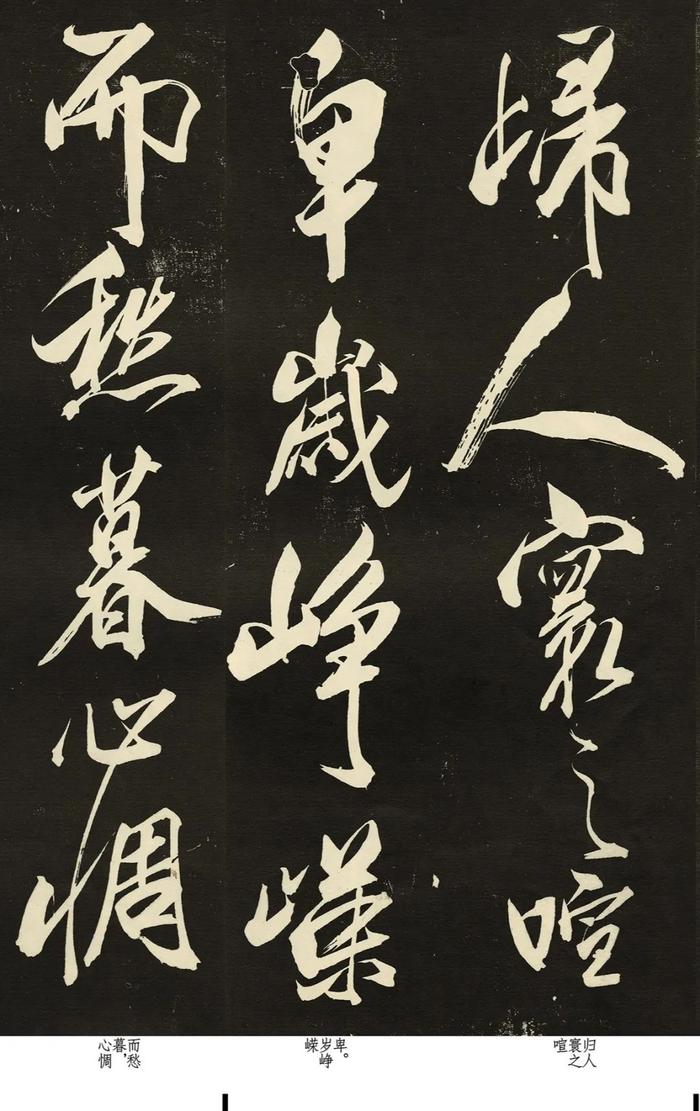 歸人寰之喧
卑歲崢嶸
而愁暮心惆
归人
寰之
喧
卑。
岁峥
嵘
而愁
暮,
心惆